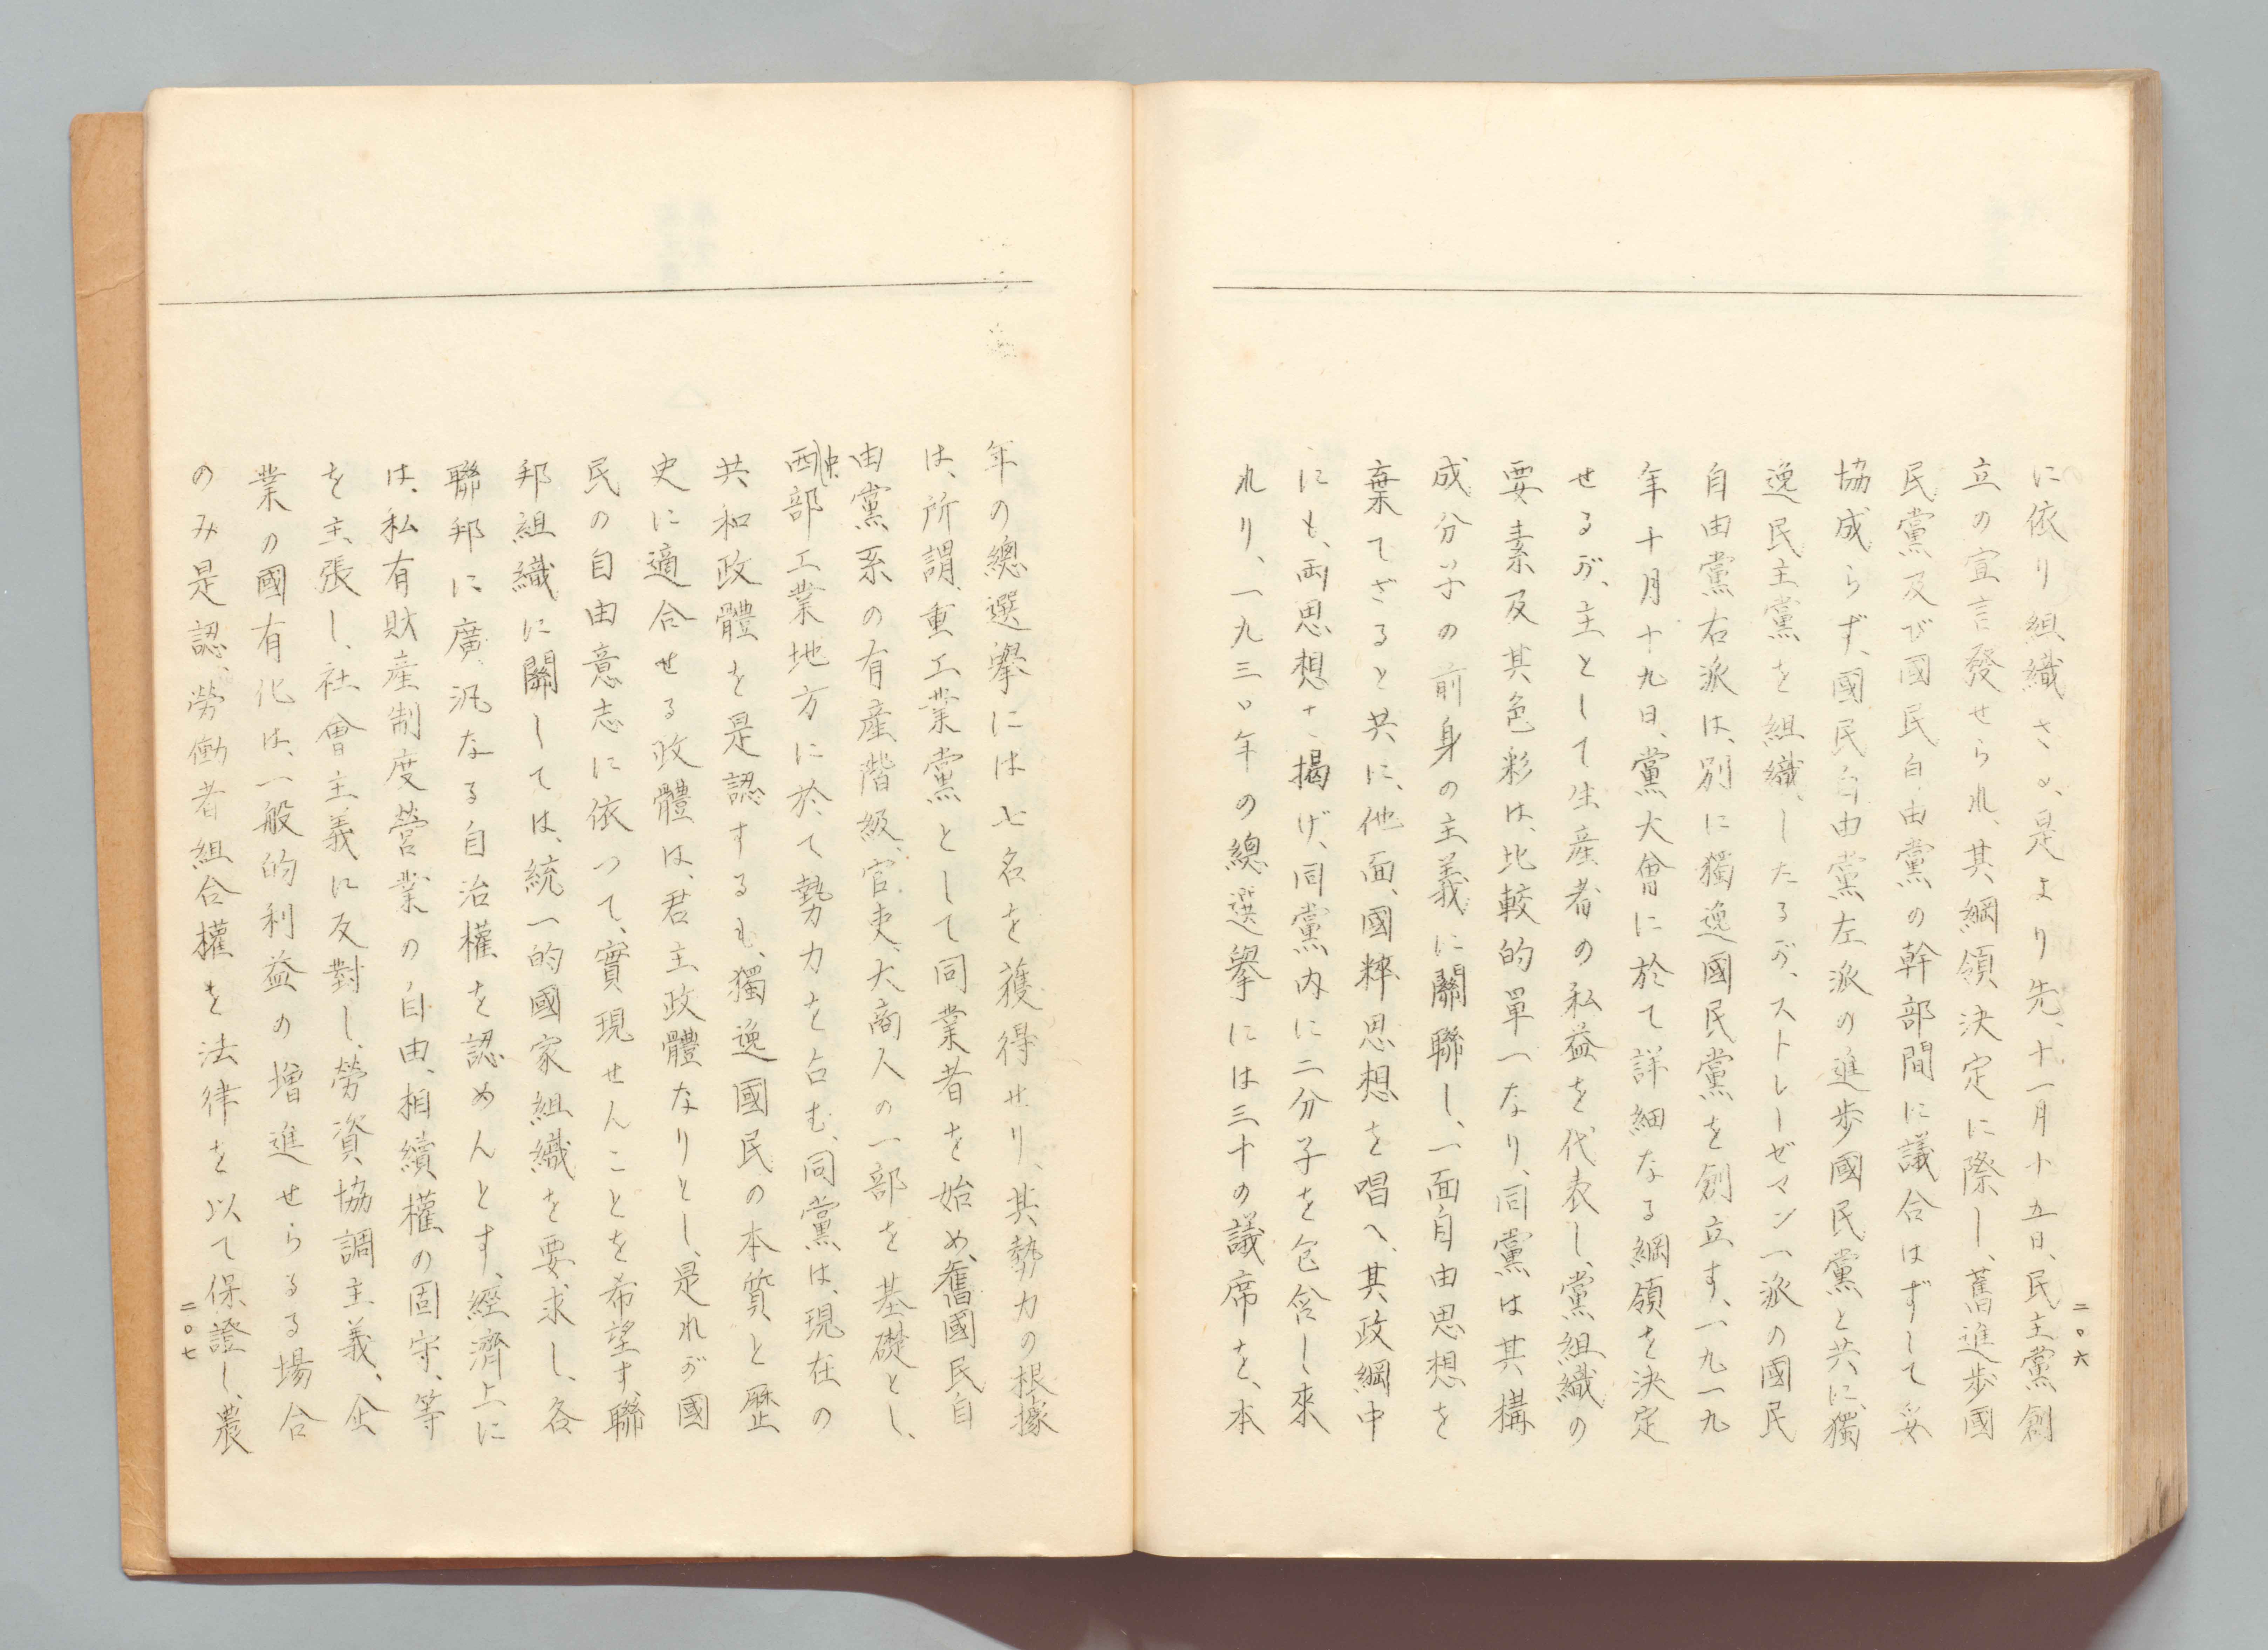 に依り組織さる、是より先、十一月十五日、民主黨創
立の宣言發せられ、其綱領決定に際し、舊進歩國
民黨及び國民自由黨の幹部間に議合はずして妥
協成らず、國民自由黨左派の進歩國民黨と共に、獨
逸民主黨を組織したるが、ストレーゼマン一派の國民
自由黨右派は、別に獨逸國民黨を創立す、一九一九
年十月十九日、黨大會に於て詳細なる綱領を決定
せるが、主として生産者の私益を代表し、黨組織の
要素及其色彩は、比較的單一なり、同黨は其構
成分子の前身の主義に關聯し、一面自由思想を
棄てざると共に、他面、國粹思想を唱へ、其政綱中
にも、両思想を揭げ、同黨内に二分子を包含し來
れり、一九三〇年の總選擧には三十の議席を、本
二〇六
年の總選擧には七名を獲得せり、其勢力の根據
は、所謂、重工業黨として同業者を始め、舊國民自
由黨系の有産階級、官吏、大商人の一部を基礎とし、
中西部工業地方に於て勢力を占む、同黨は、現在の
共和政體を是認するも、獨逸國民の本質と歴
史に適合せる政體は、君主政體なりとし、是れが國
民の自由意志に依つて、實現せんことを希望す、聯
邦組織に關しては、統一的國家組織を要求し、各
聯邦に廣汎なる自治權を認めんとす、經濟上に
は、私有財産制度營業の自由、相續權の固守、等
を主張し、社會主義に反對し、勞資協調主義、企
業の國有化は、一般的利益の増進せらるる場合
のみ是認、勞働者組合權を法律を以て保證し、農
二〇七